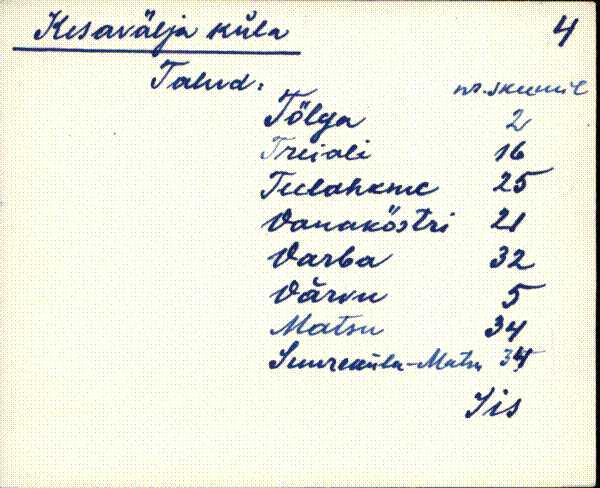 Kesavälja küla 4
Talud: nr. skeemil
Tõlga 2
Treiali 16
Teelahkme 25
Vanaköstri 21
Varba 32
Värvu 5
Matsu 34
Suureküla-Matsu 34